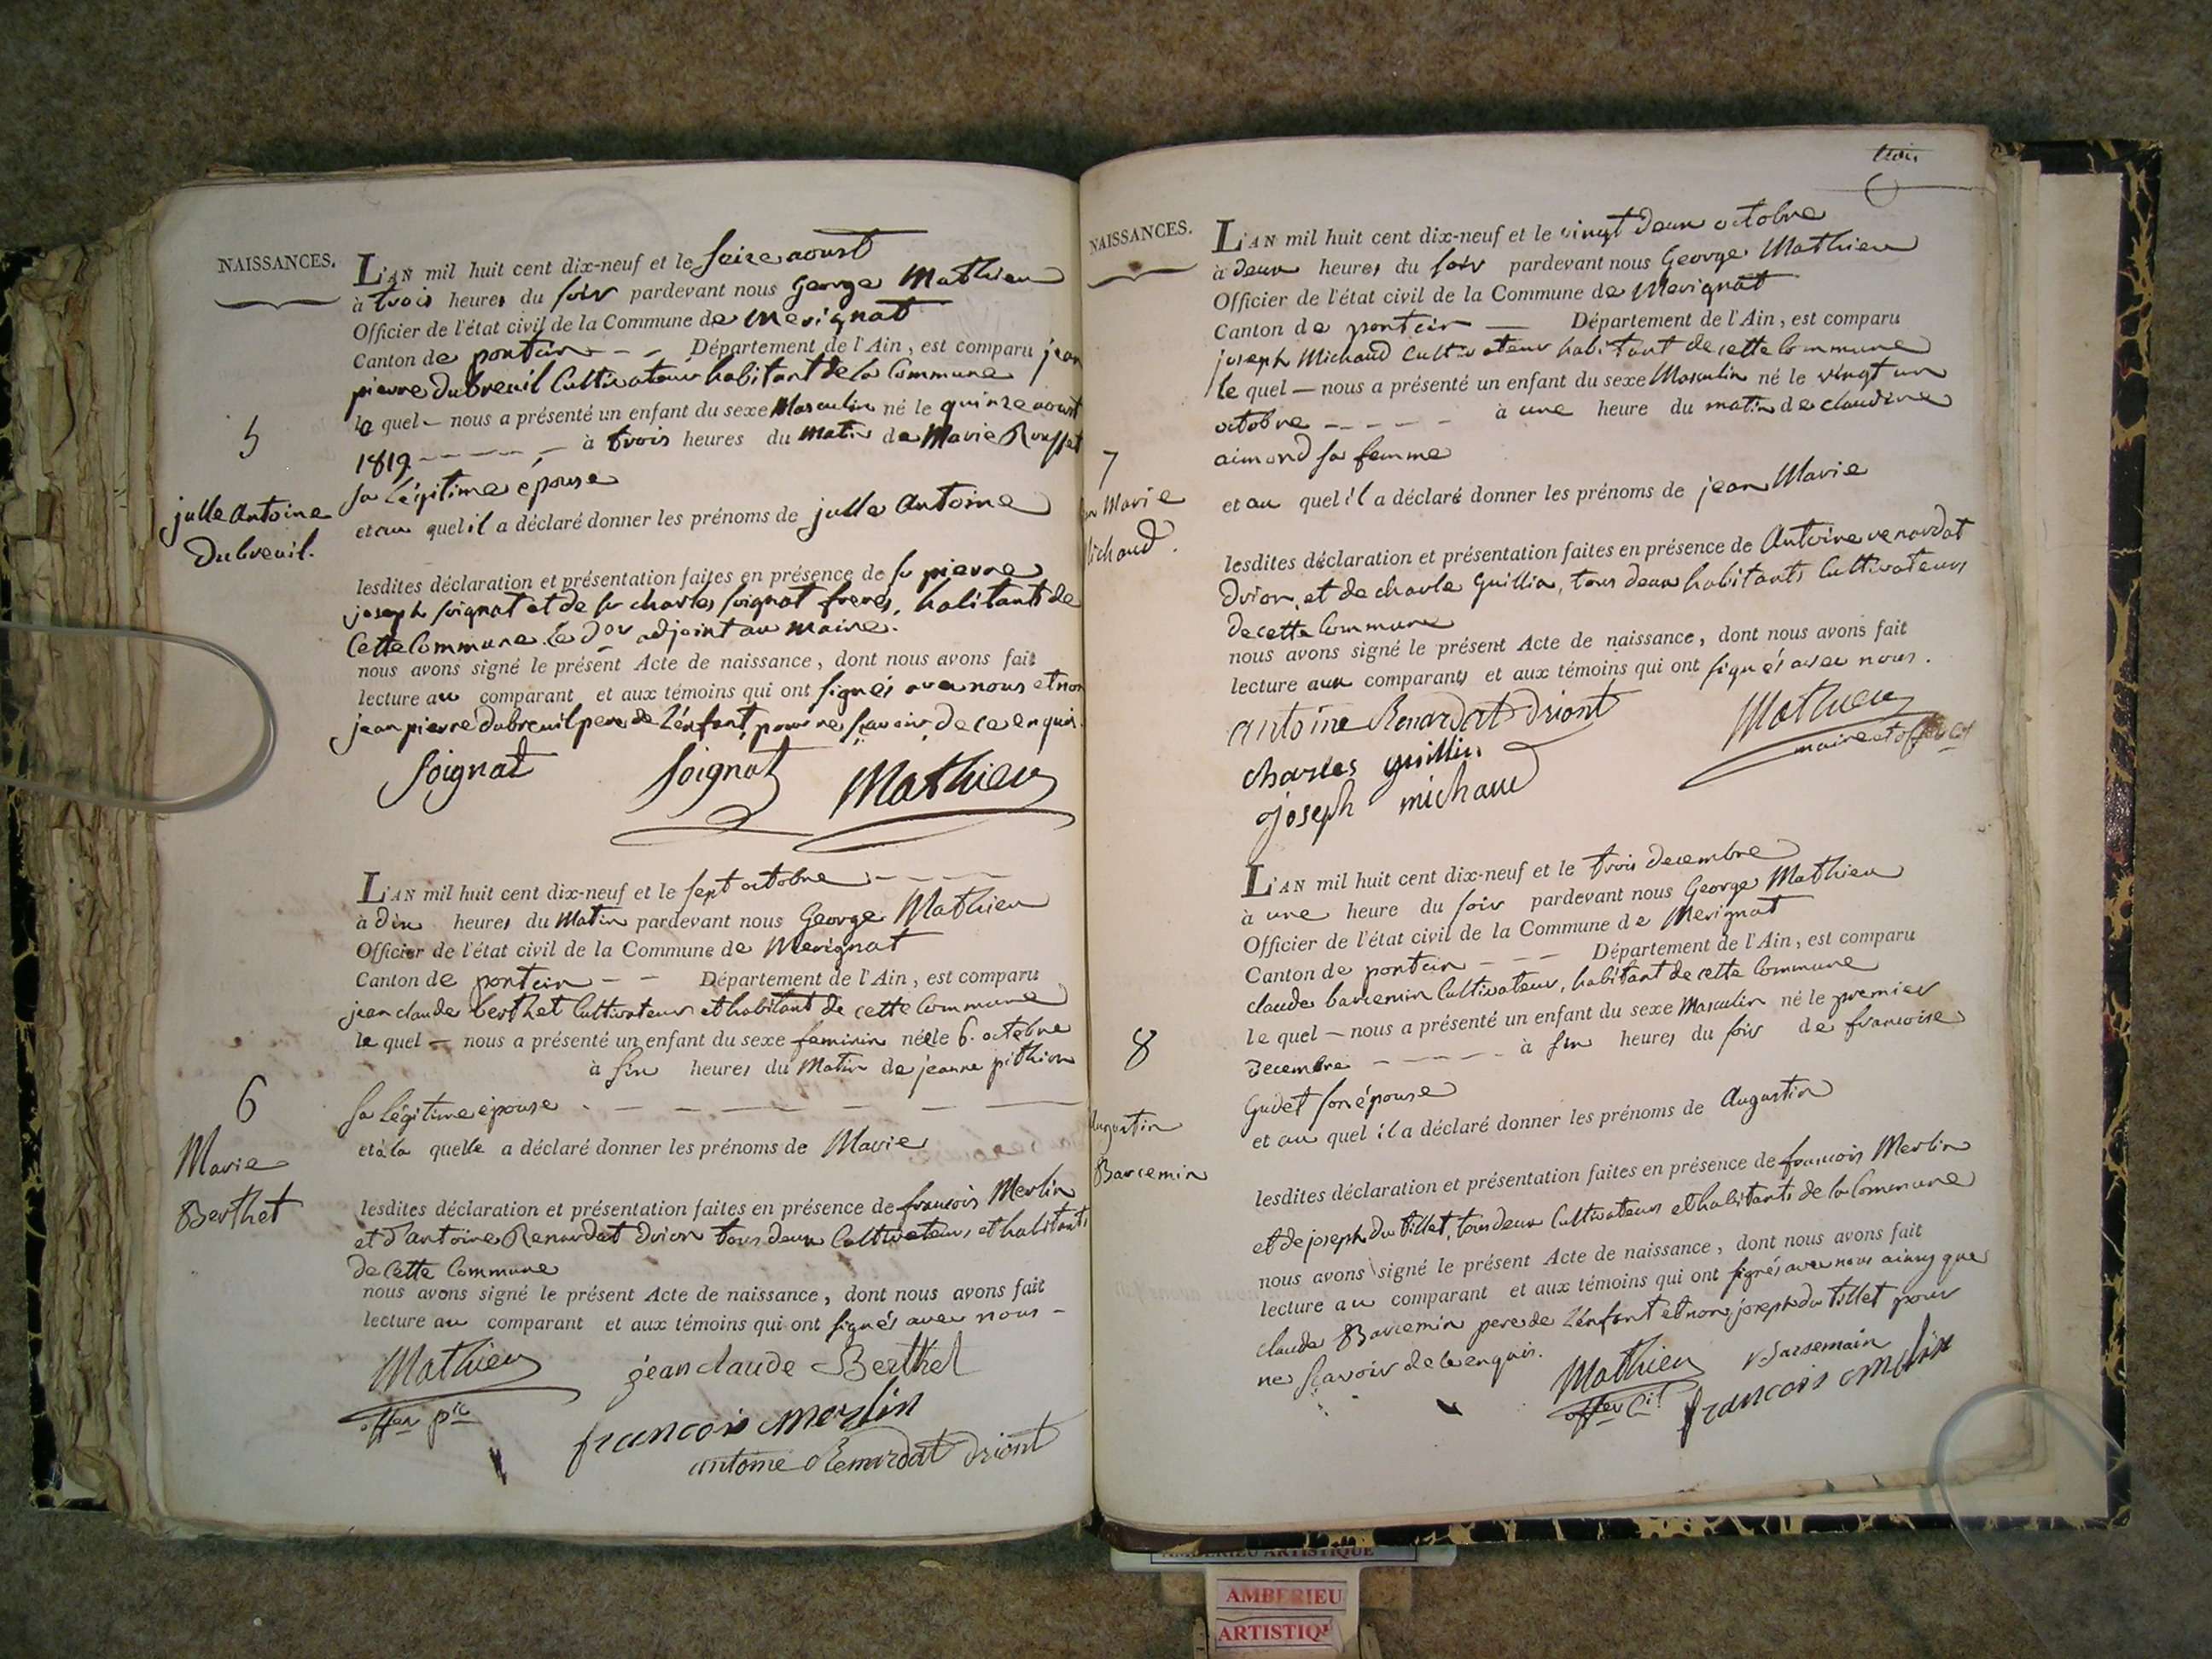 NAISSANCES.
L'AN mil huit cent dix-neuf et le seize aoust
à trois heures du soir pardevant nous George Mathieu
Officier de l'état civil de la Commune de Merignat
Canton de poncin - - Département de l'Ain, est comparu jean
pierre dubreuil Cultivateur habitant de la Commune
le quel - nous a présenté un enfant du sexe Masculin né le quinze aoust
1819 - - - - - à trois heures du matin de Marie Rousset
sa légitime épouse
et au quel il a déclaré donner les prénoms de julle Antoine
5
julle Antoine
Dubreuil.
lesdites déclaration et présentation faites en présence de sr pierre
joseph soignat et de sr charles soignat freres, habitants de
Cette Commune le der adjoint au maire.
nous avons signé le présent Acte de naissance, dont nous avons fait
lecture au comparant et aux témoins qui ont signés avec nous et non
jean pierre dubreuil pere de l'énfant, pour ne scavoir de ce enquis.
soignat soignat Mathieu
L'AN mil huit cent dix-neuf et le sept octobre - - - -
à dix heures du Matin pardevant nous George Mathieu
Officier de l'état civil de la Commune de Merignat
Canton de poncin - - Département de l'Ain, est comparu
jean claude berthet Cultivateur et habitant de cette Commune
le quel - nous a présenté un enfant du sexe feminin née le 6. octobre
à six heures du Matin de jeanne pithion
sa légitime épouse - - - - - -
et à la quelle a déclaré donner les prénoms de Marie
6
Marie
Berthet
lesdites déclaration et présentation faites en présence de francois Merlin
et d'antoine Renardat Drion tous deux Cultivateurs et habitants
de Cette Commune
nous avons signé le présent Acte de naissance, dont nous avons fait
lecture au comparant et aux témoins qui ont signés avec nous -
Mathieu jean claude Berthet
francois merlin
antoine Renardat Driont
trois
NAISSANCES.
L'AN mil huit cent dix-neuf et le vingt deux octobre
à deux heures du soir pardevant nous George Mathieu
Officier de l'état civil de la Commune de Merignat
Canton de poncin - Département de l'Ain, est comparu
joseph Michaud Cultivateur habitant de cette Commune
le quel - nous a présenté un enfant du sexe Masculin né le vingt un
octobre - - - - - à une heure du matin de claudine
aimond sa femme
et au quel il a déclaré donner les prénoms de jean Marie
7
Marie
Michaud.
lesdites déclaration et présentation faites en présence de Antoine renardat
Drion, et de charle Guillin, tous deux habitants Cultivateurs
de cette Commune
nous avons signé le présent Acte de naissance, dont nous avons fait
lecture aux comparants et aux témoins qui ont signés avec nous.
antoine Renardat Driont Mathieu
charles guillin
joseph michaud
L'AN mil huit cent dix-neuf et le trois decembre
à une heure du soir pardevant nous George Mathieu
Officier de l'état civil de la Commune de Merignat
Canton de poncin - - - Département de l'Ain, est comparu
claude barcemin Cultivateur, habitant de cette Commune
le quel - nous a présenté un enfant du sexe Masculin né le premier
Decembre - - - - - à six heures du soir de francoise
Gudet son épouse
et au quel il a déclaré donner les prénoms de Augustin
8
Augustin
Barcemin
lesdites déclaration et présentation faites en présence de francois Merlin
et de joseph du tillet, tous deux Cultivateurs et habitants de la Commune
nous avons signé le présent Acte de naissance, dont nous avons fait
lecture au comparant et aux témoins qui ont signés avec nous ainsy que
claude Barcemin pere de l'énfant et non joseph du tillet pour
ne scavoir de ce enquis.
Mathieu Barsemain
francois merlin
AMBERIEU ARTISTIQUE
AMBERIEU
ARTISTIQU